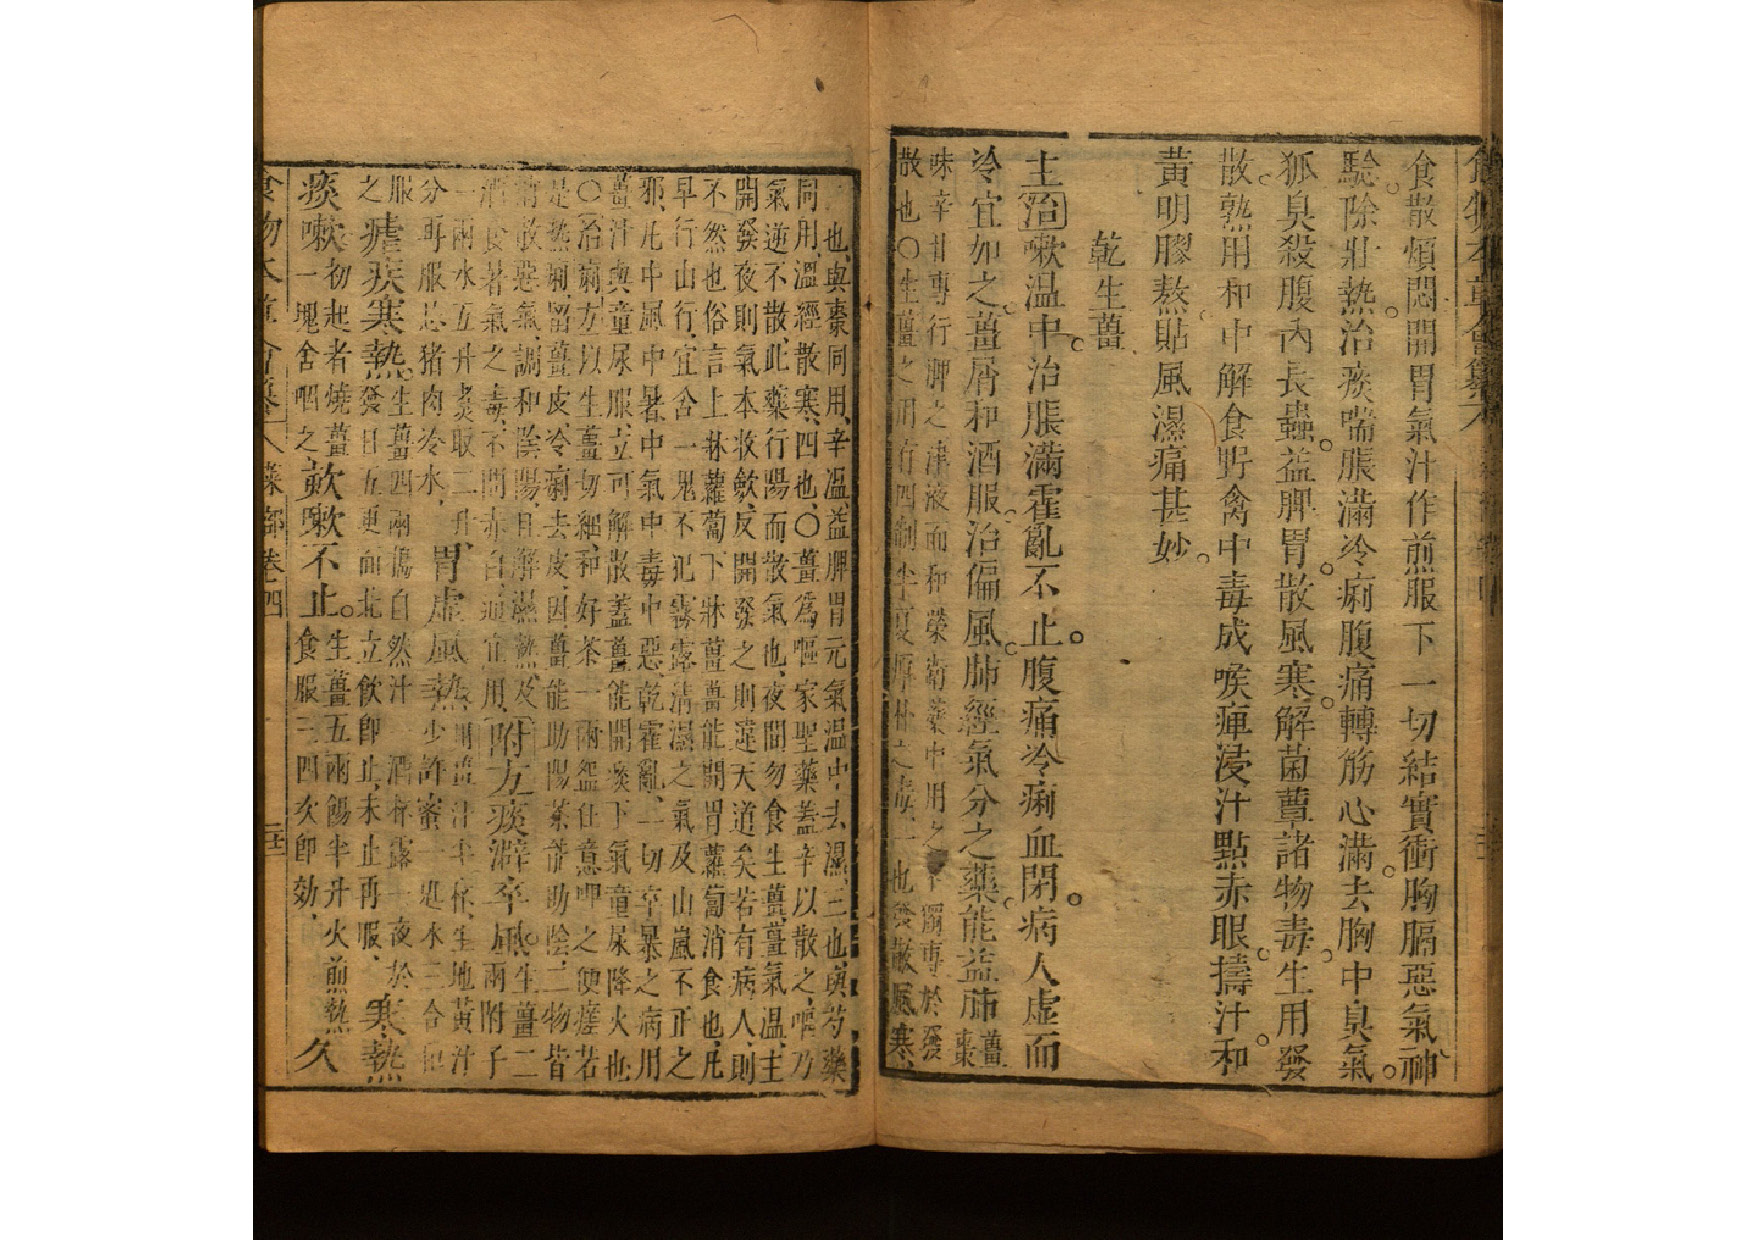 食物本草會纂
食散煩悶開胃氣汁作煎服下一切結實衝胸膈惡氣神
驗除壯熱治痰喘脹滿冷痢腹痛轉筋心滿去胸中臭氣
狐臭殺腹內長蟲益脾胃散風寒解菌蕈諸物毒生用發
散熟用和中解食野禽中毒成喉痺浸汁點赤眼擣汁和
黃明膠熬貼風濕痛甚妙
乾生薑
主治嗽温中治脹滿霍亂不止腹痛冷痢血閉病人虛而
冷宜加之薑屑和酒服治偏風肺經氣分之藥能益肺
薑棗
味辛甘專行脾之津液而和榮衛藥中用之不獨專於發
散也〇生薑之用有四制半夏厚朴之毒一也發散風寒
二也與棗同用辛温益脾胃元氣温中去濕三也與芍藥
同用温經散寒四也〇薑爲嘔家聖藥蓋辛以散之嘔乃
氣逆不散此藥行陽而散氣也夜間勿食生薑薑氣温主
開發夜則氣本收歛反開發之則違天道矣若有病人則
不然也俗言上牀蘿蔔下牀薑薑能開胃蘿蔔消食也凡
早行山行宜含一塊不犯霧露清濕之氣及山嵐不正之
邪凡中風中暑中氣中毒中惡乾霍亂一切卒暴之病用
薑汁與童尿服立可解散蓋薑能開痰下氣童尿降火也
〇治痢方以生薑切細和好茶一兩盌任意呷之便瘥若
是熱痢留薑皮冷痢去皮因薑能助陽茶能助陰二物皆
消散惡氣調和陰陽且解濕熱及
酒食暑氣之毒不問赤白通宜用
附方痰澼卒風
生薑二兩附子
一兩水五升煮取二升
分再服忌猪肉冷水
胃虛風熱
用薑汁半杯生地黃汁
少許蜜一匙水三合和
服之
瘧疾寒熱
生薑四兩搗自然汁一酒杯露一夜於
發日五更面北立飲卽止未止再服
寒熱
痰嗽
初起者燒薑
一塊含咽之
欬嗽不止
生薑五兩餳半升火煎熟
食服三四次卽効
久
食物本草會纂
蔬部卷四